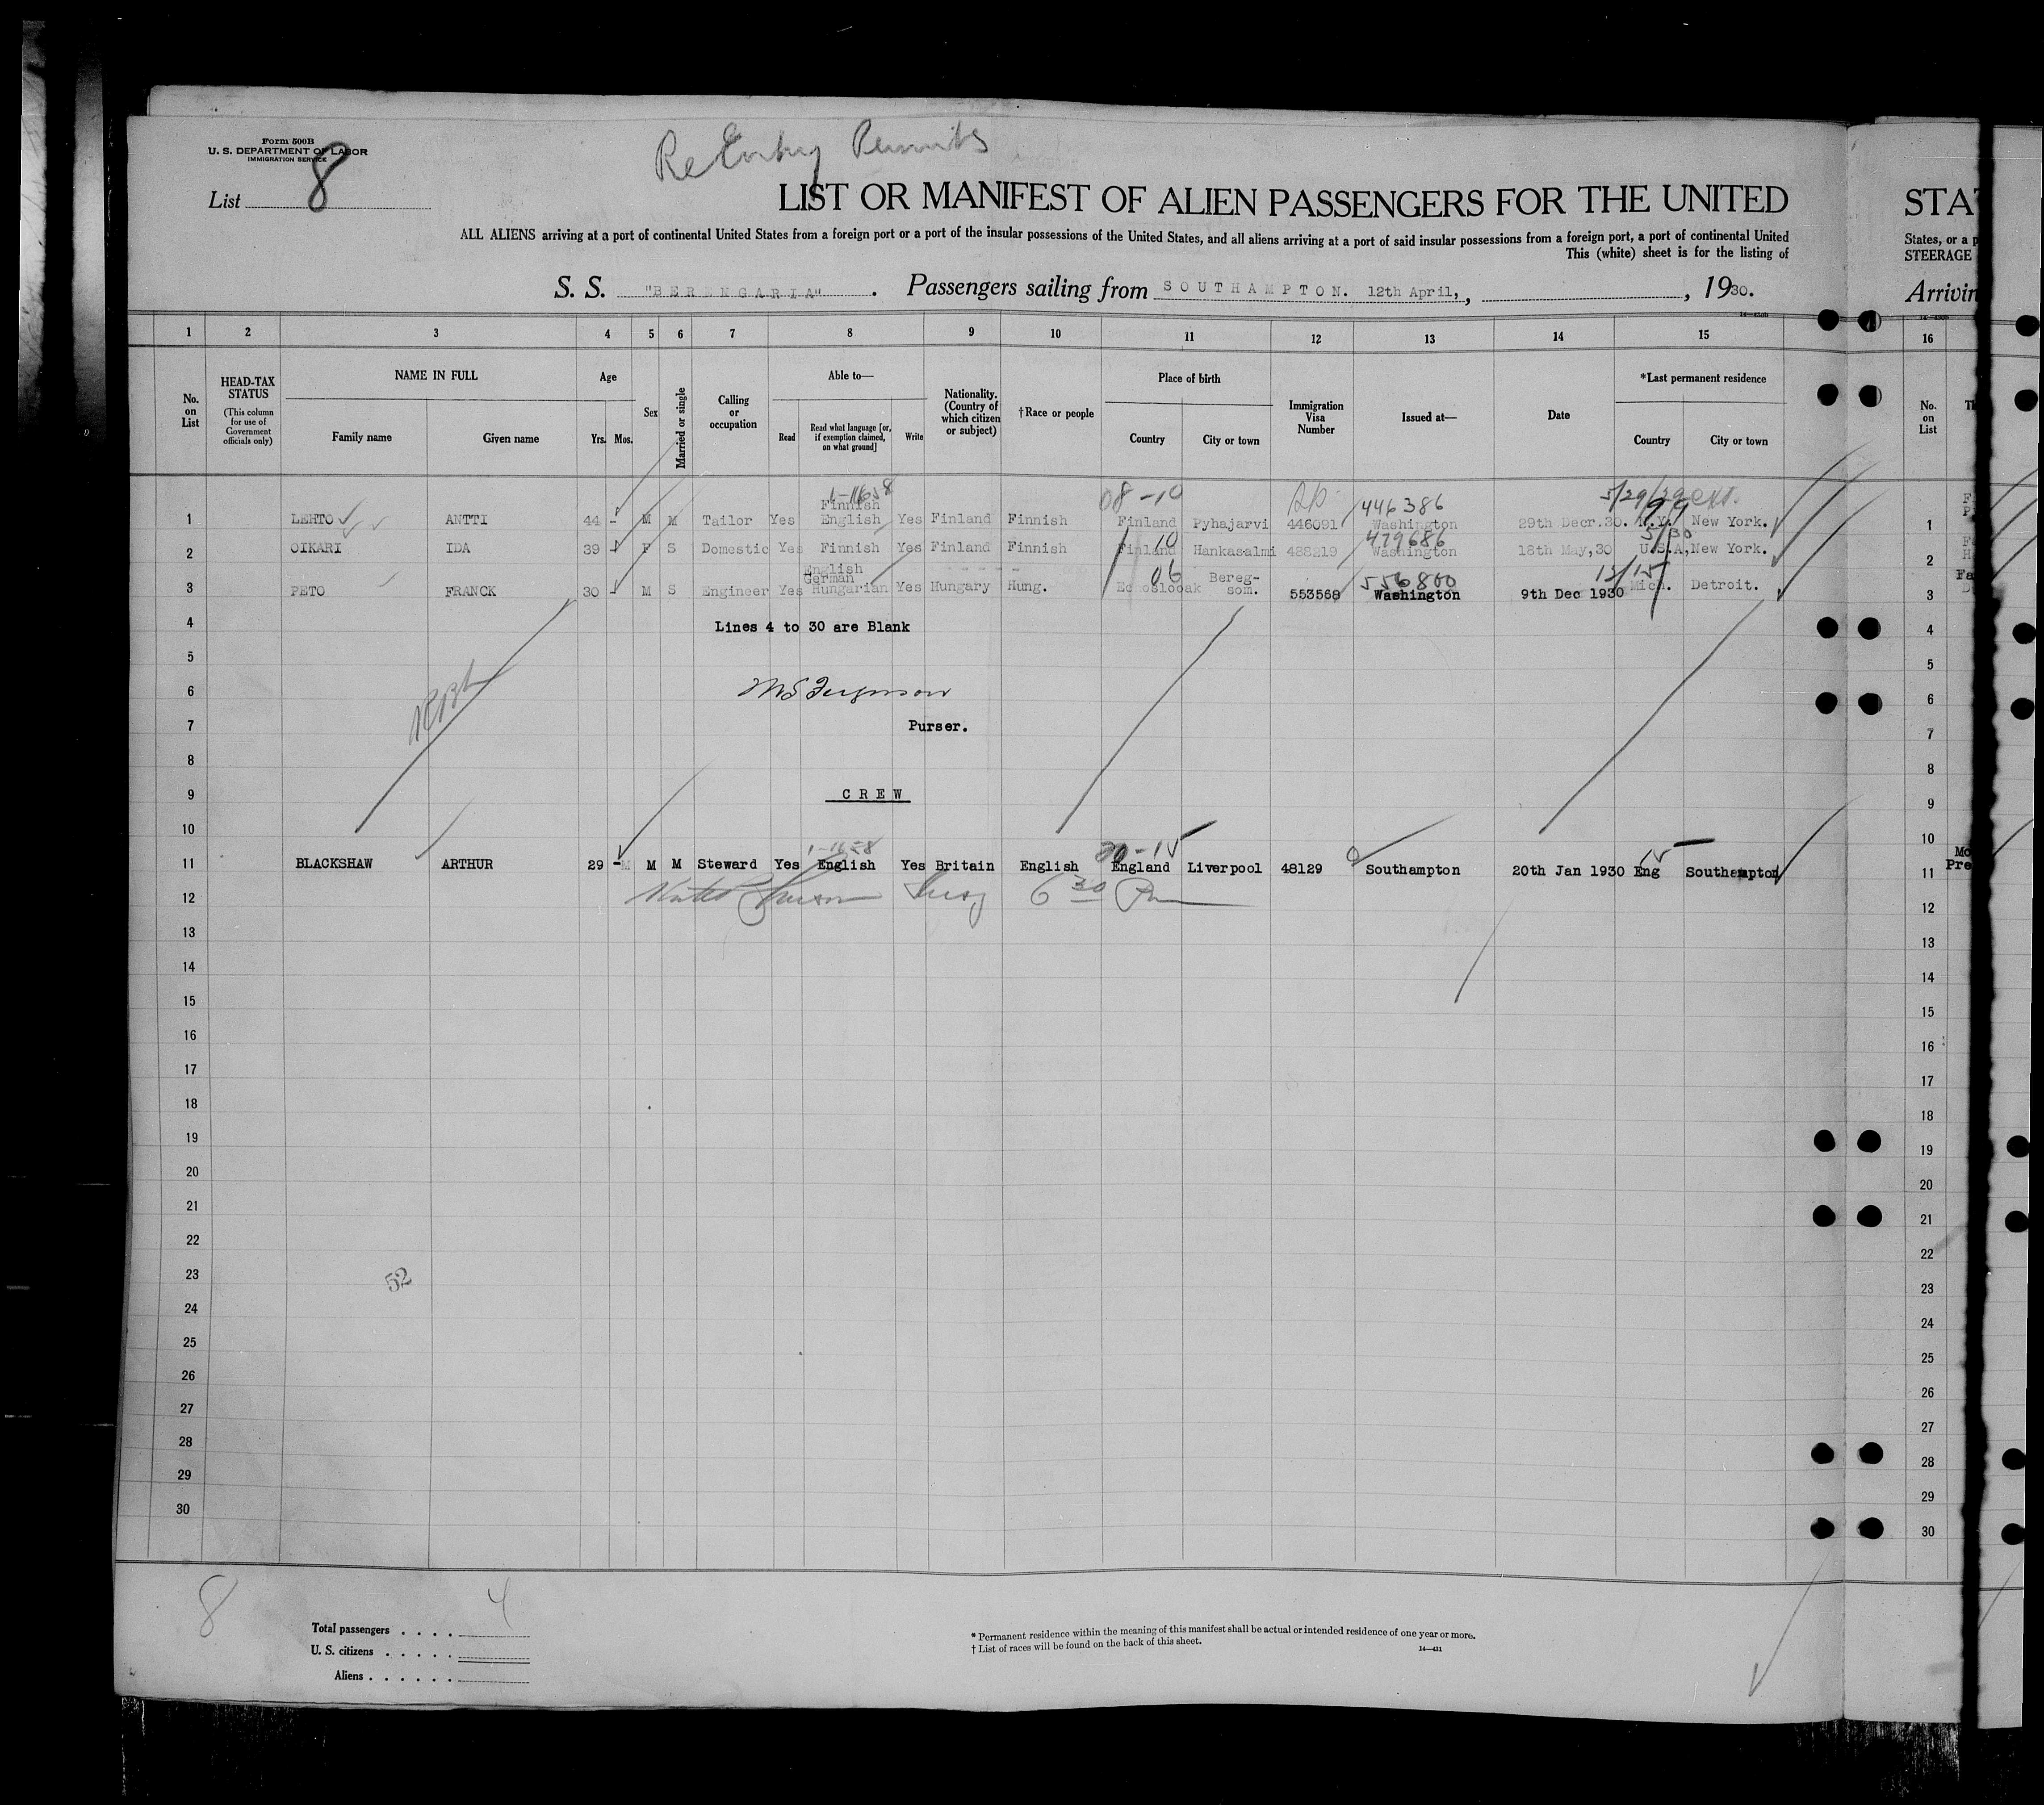 Form 500B
U. S. DEPARTMENT OF LABOR
IMMIGRATION SERVICE
List 8
ReEntry Permits
LIST OR MANIFEST OF ALIEN PASSENGERS FOR THE UNITED
STA
ALL ALIENS arriving at a port of continental United States from a foreign port or a port of the insular possessions of the United States, and all aliens arriving at a port of said insular possessions from a foreign port, a port of continental United
States, or a p
This (white) sheet is for the listing of
STEERAGE
S. S. "BERENGARIA". Passengers sailing from SOUTHAMPTON. 12th April, , 1930.
Arrivin
1 2 3 4 5 6 7 8 9 10 11 12 13 14 15 16
No. on List
HEAD-TAX STATUS
(This column for use of Government officials only)
NAME IN FULL
Family name Given name
Age
Yrs. Mos.
Sex
Married or single
Calling or occupation
Able to—
Read
Read what language [or, if exemption claimed, on what ground]
Write
Nationality. (Country of which citizen or subject)
†Race or people
Place of birth
Country City or town
Immigration Visa Number
Issued at—
Date
*Last permanent residence
Country City or town
No. on List
08-10 446386 5/29/29 ext.
Finnish
1 LEHTO ANTTI 44 - M M Tailor Yes English Yes Finland Finnish Finland Pyhajarvi 446091 Washington 29th Decr.30. N.Y. New York. 1
10 479686 5/30
2 OIKARI IDA 39 - F S Domestic Yes Finnish Yes Finland Finnish Finland Hankasalmi 488219 Washington 18th May,30 U.S.A, New York. 2
English
German 06 Bereg- 556800 12/15
3 PETO FRANCK 30 - M S Engineer Yes Hungarian Yes Hungary Hung. som. 553568 Washington 9th Dec 1930 Mich. Detroit. 3
4 Lines 4 to 30 are Blank 4
5 5
6 Ferguson 6
7 Purser. 7
8 8
9 CREW 9
10 10
1-1658 20-15 15
11 BLACKSHAW ARTHUR 29 - M M Steward Yes English Yes Britain English England Liverpool 48129 Southampton 20th Jan 1930 Eng Southampton 11
12 6 30 Pm 12
13 13
14 14
15 15
16 16
17 17
18 18
19 19
20 20
21 21
22 22
23 52 23
24 24
25 25
26 26
27 27
28 28
29 29
30 30
8
Total passengers . . . . 4
U. S. citizens . . . . .
Aliens . . . . . .
* Permanent residence within the meaning of this manifest shall be actual or intended residence of one year or more.
† List of races will be found on the back of this sheet.
14—421